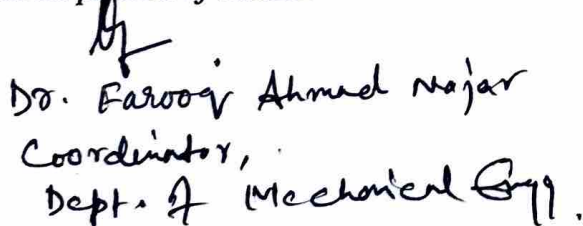 Dr. Farooq Ahmad Najar
Coordinator,
Dept. of Mechanical Engg.